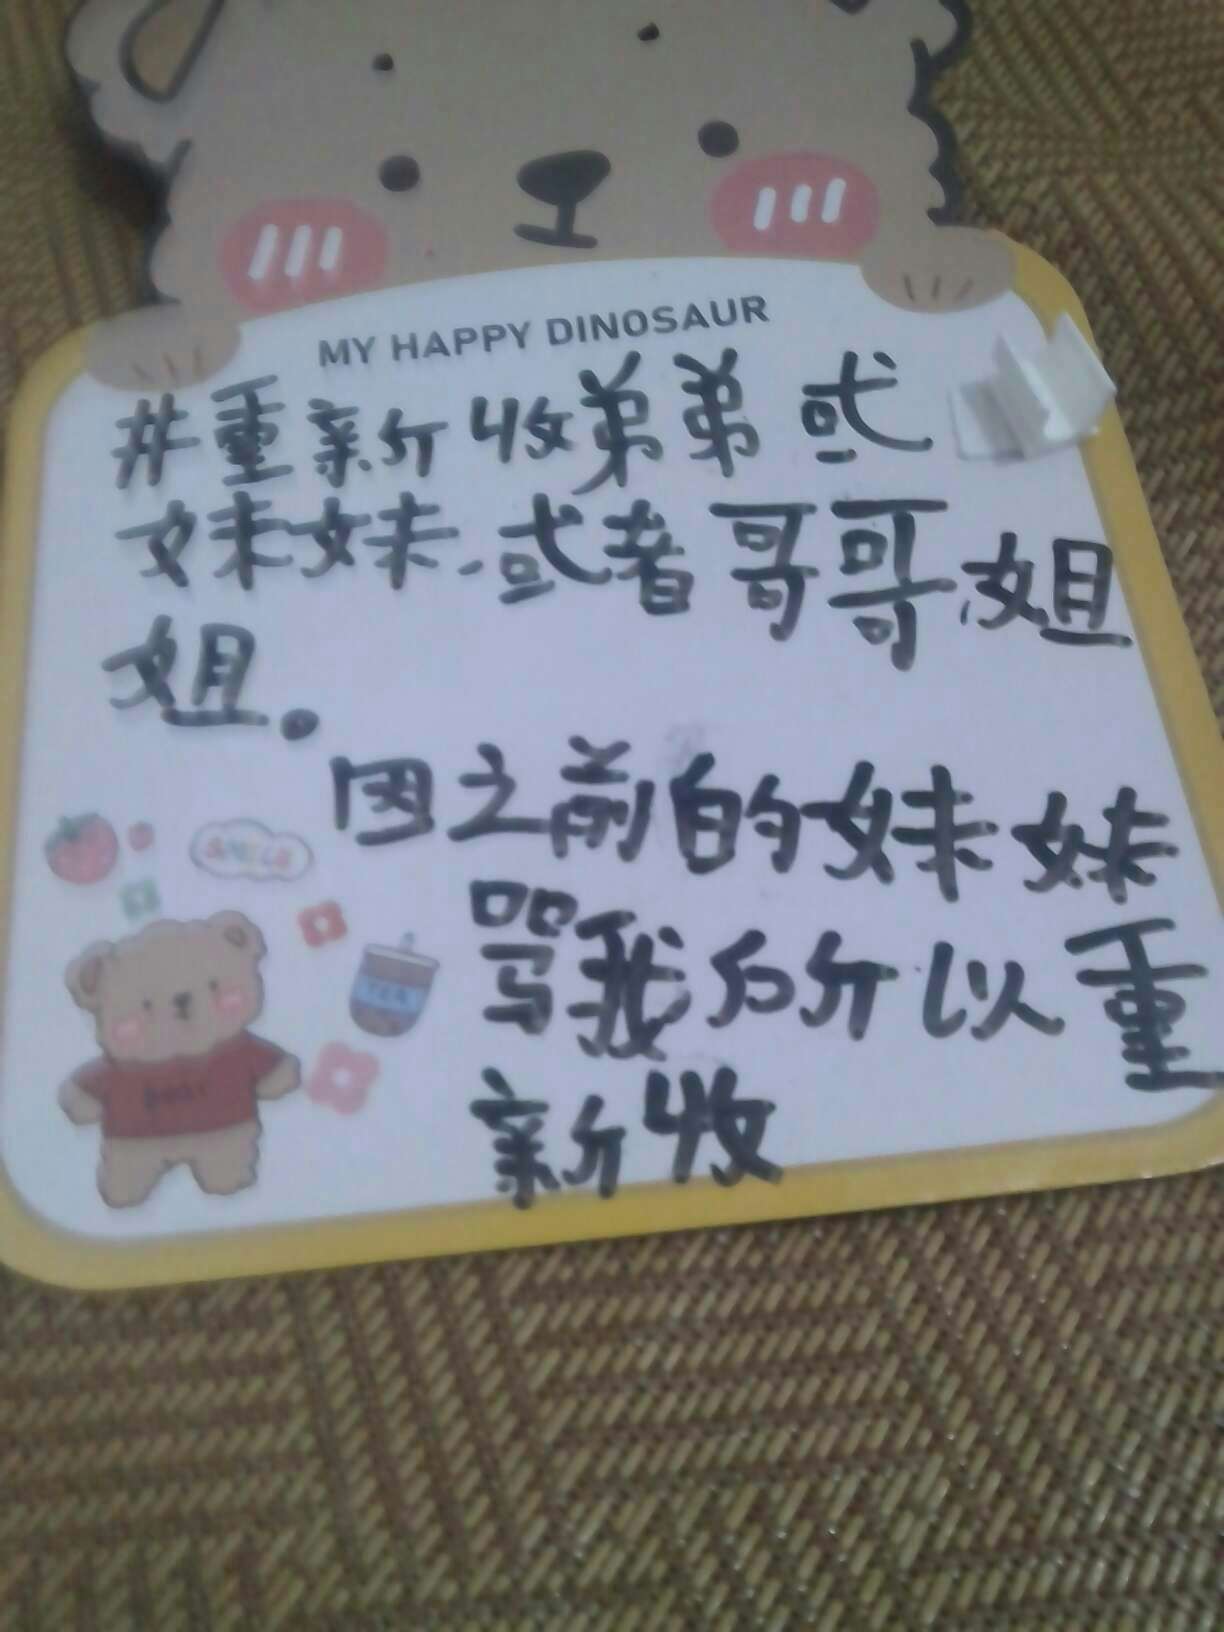 MY HAPPY DINOSAUR
#重新收弟弟或
妹妹.或者哥哥.姐
姐.
因之前的妹妹
骂我的所以重
新收
SMILE
TEA